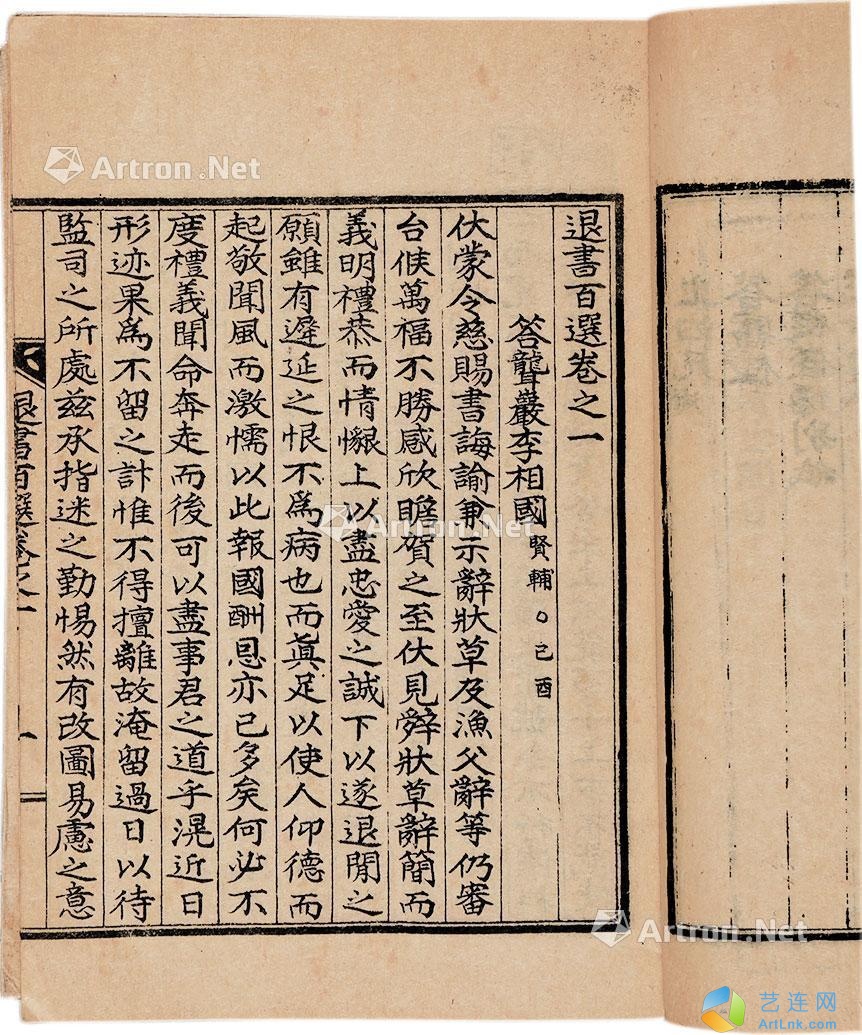 退書百選卷之一
答聾巖李相國賢輔○己酉
伏蒙令慈賜書誨諭兼示辭狀草及漁父辭等仍審
台候萬福不勝感欣瞻賀之至伏見辭狀草辭簡而
義明禮恭而情懇上以盡忠愛之誠下以遂退閒之
願雖有遲延之恨不爲病也而眞足以使人仰德而
起敬聞風而激懦以此報國酬恩亦已多矣何必不
度禮義聞命奔走而後可以盡事君之道乎滉近日
形迹果爲不留之計惟不得擅離故淹留過日以待
監司之所處兹承指迷之勤惕然有改圖易慮之意
退書百選卷之一
一
Artron.Net
Artron.Net
Artron.Net
艺连网
ArtLnk.com